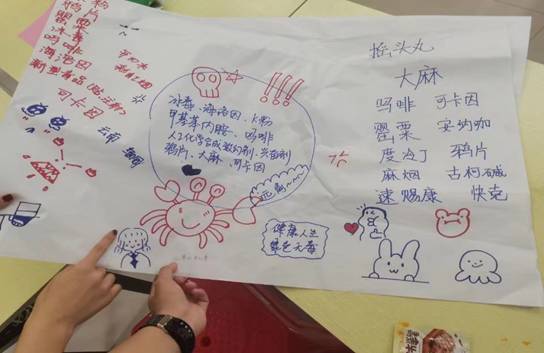 鸦片
罂粟
冰毒
吗啡
海洛因
可卡因
云南
冰毒、海洛因、大麻
甲基苯丙胺、吗啡
人工化学合成致幻剂、兴奋剂
鸦片、大麻、可卡因
远离~~~
健康人生
绿色无毒
摇头丸
大麻
吗啡 可卡因
罂粟 安纳咖
度冷丁 鸦片
麻烟 古柯碱
速赐康 快克